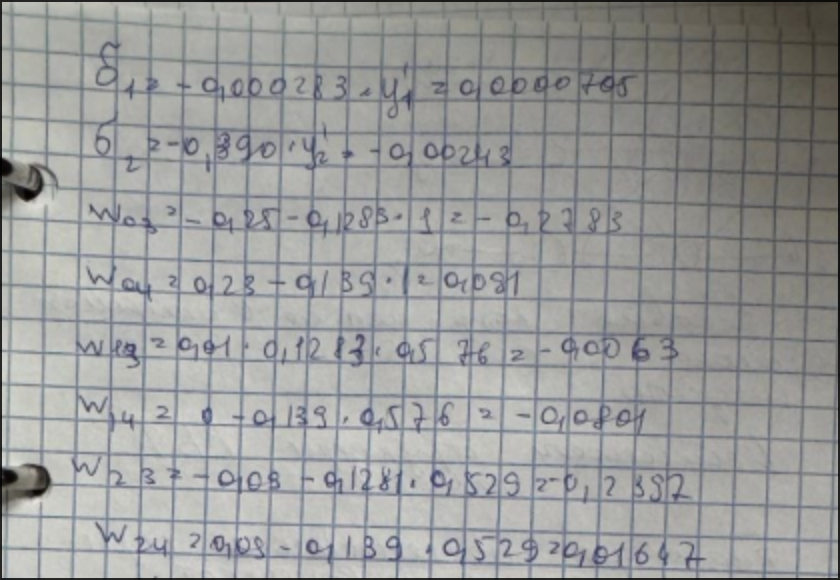 б₁ = -0,000283 · y₁' = 0,0000705
б₂ = -0,390 · y₂' = -0,00243
w₀₃ = -0,25 - 0,1283 · 1 = -0,2783
w₀₄ = 0,23 - 0,139 · 1 = 0,091
w₁₃ = 0,01 · 0,1283 · 0,576 = -0,0063
w₁₄ = 0 - 0,139 · 0,576 = -0,0801
w₂₃ = -0,09 - 0,1281 · 0,529 = -0,2397
w₂₄ = 0,09 - 0,139 · 0,529 = 0,01647